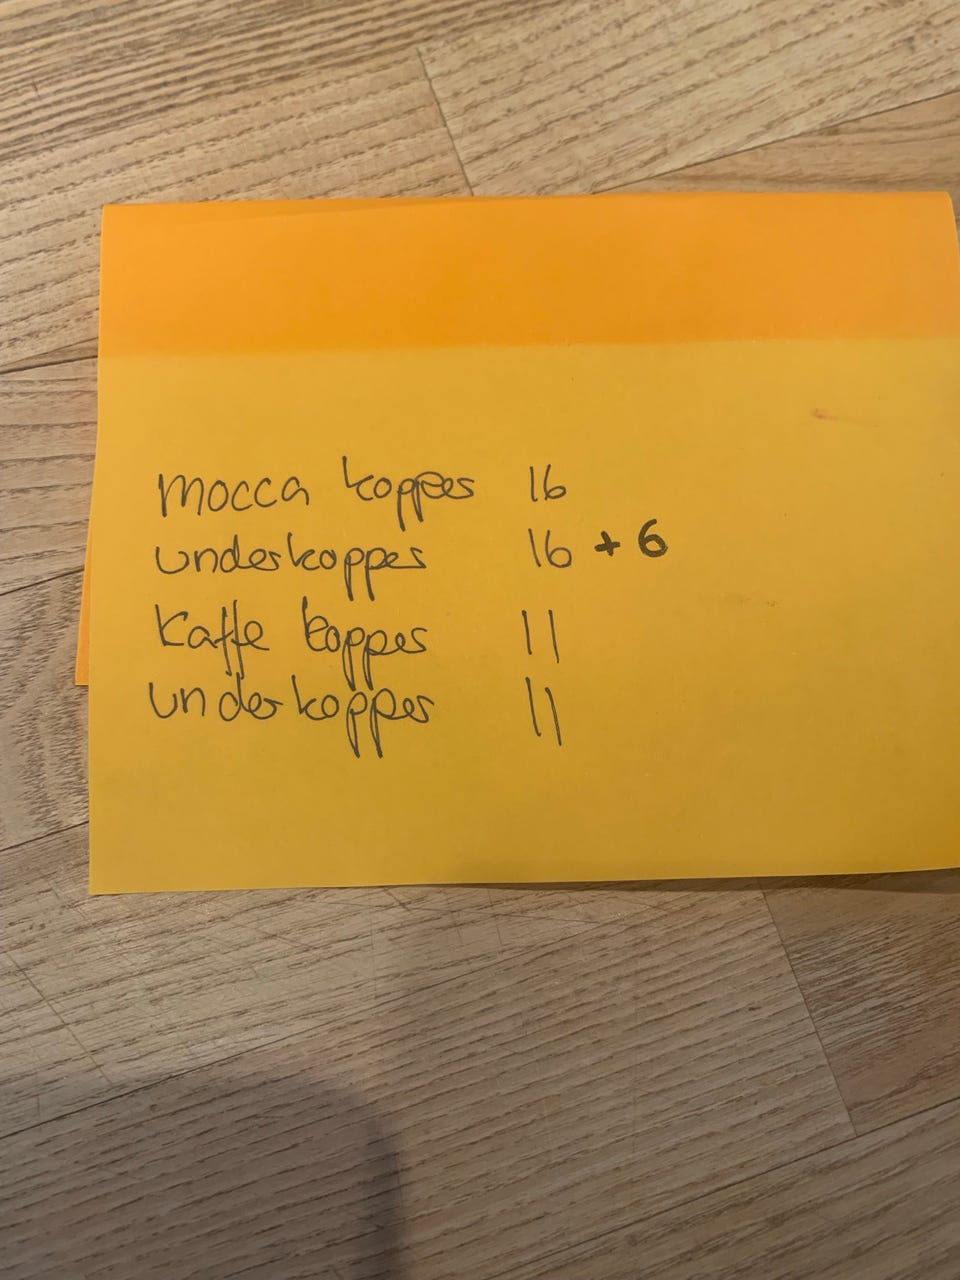 mocca kopper 16
underkopper 16 + 6
Kaffe kopper 11
underkopper 11